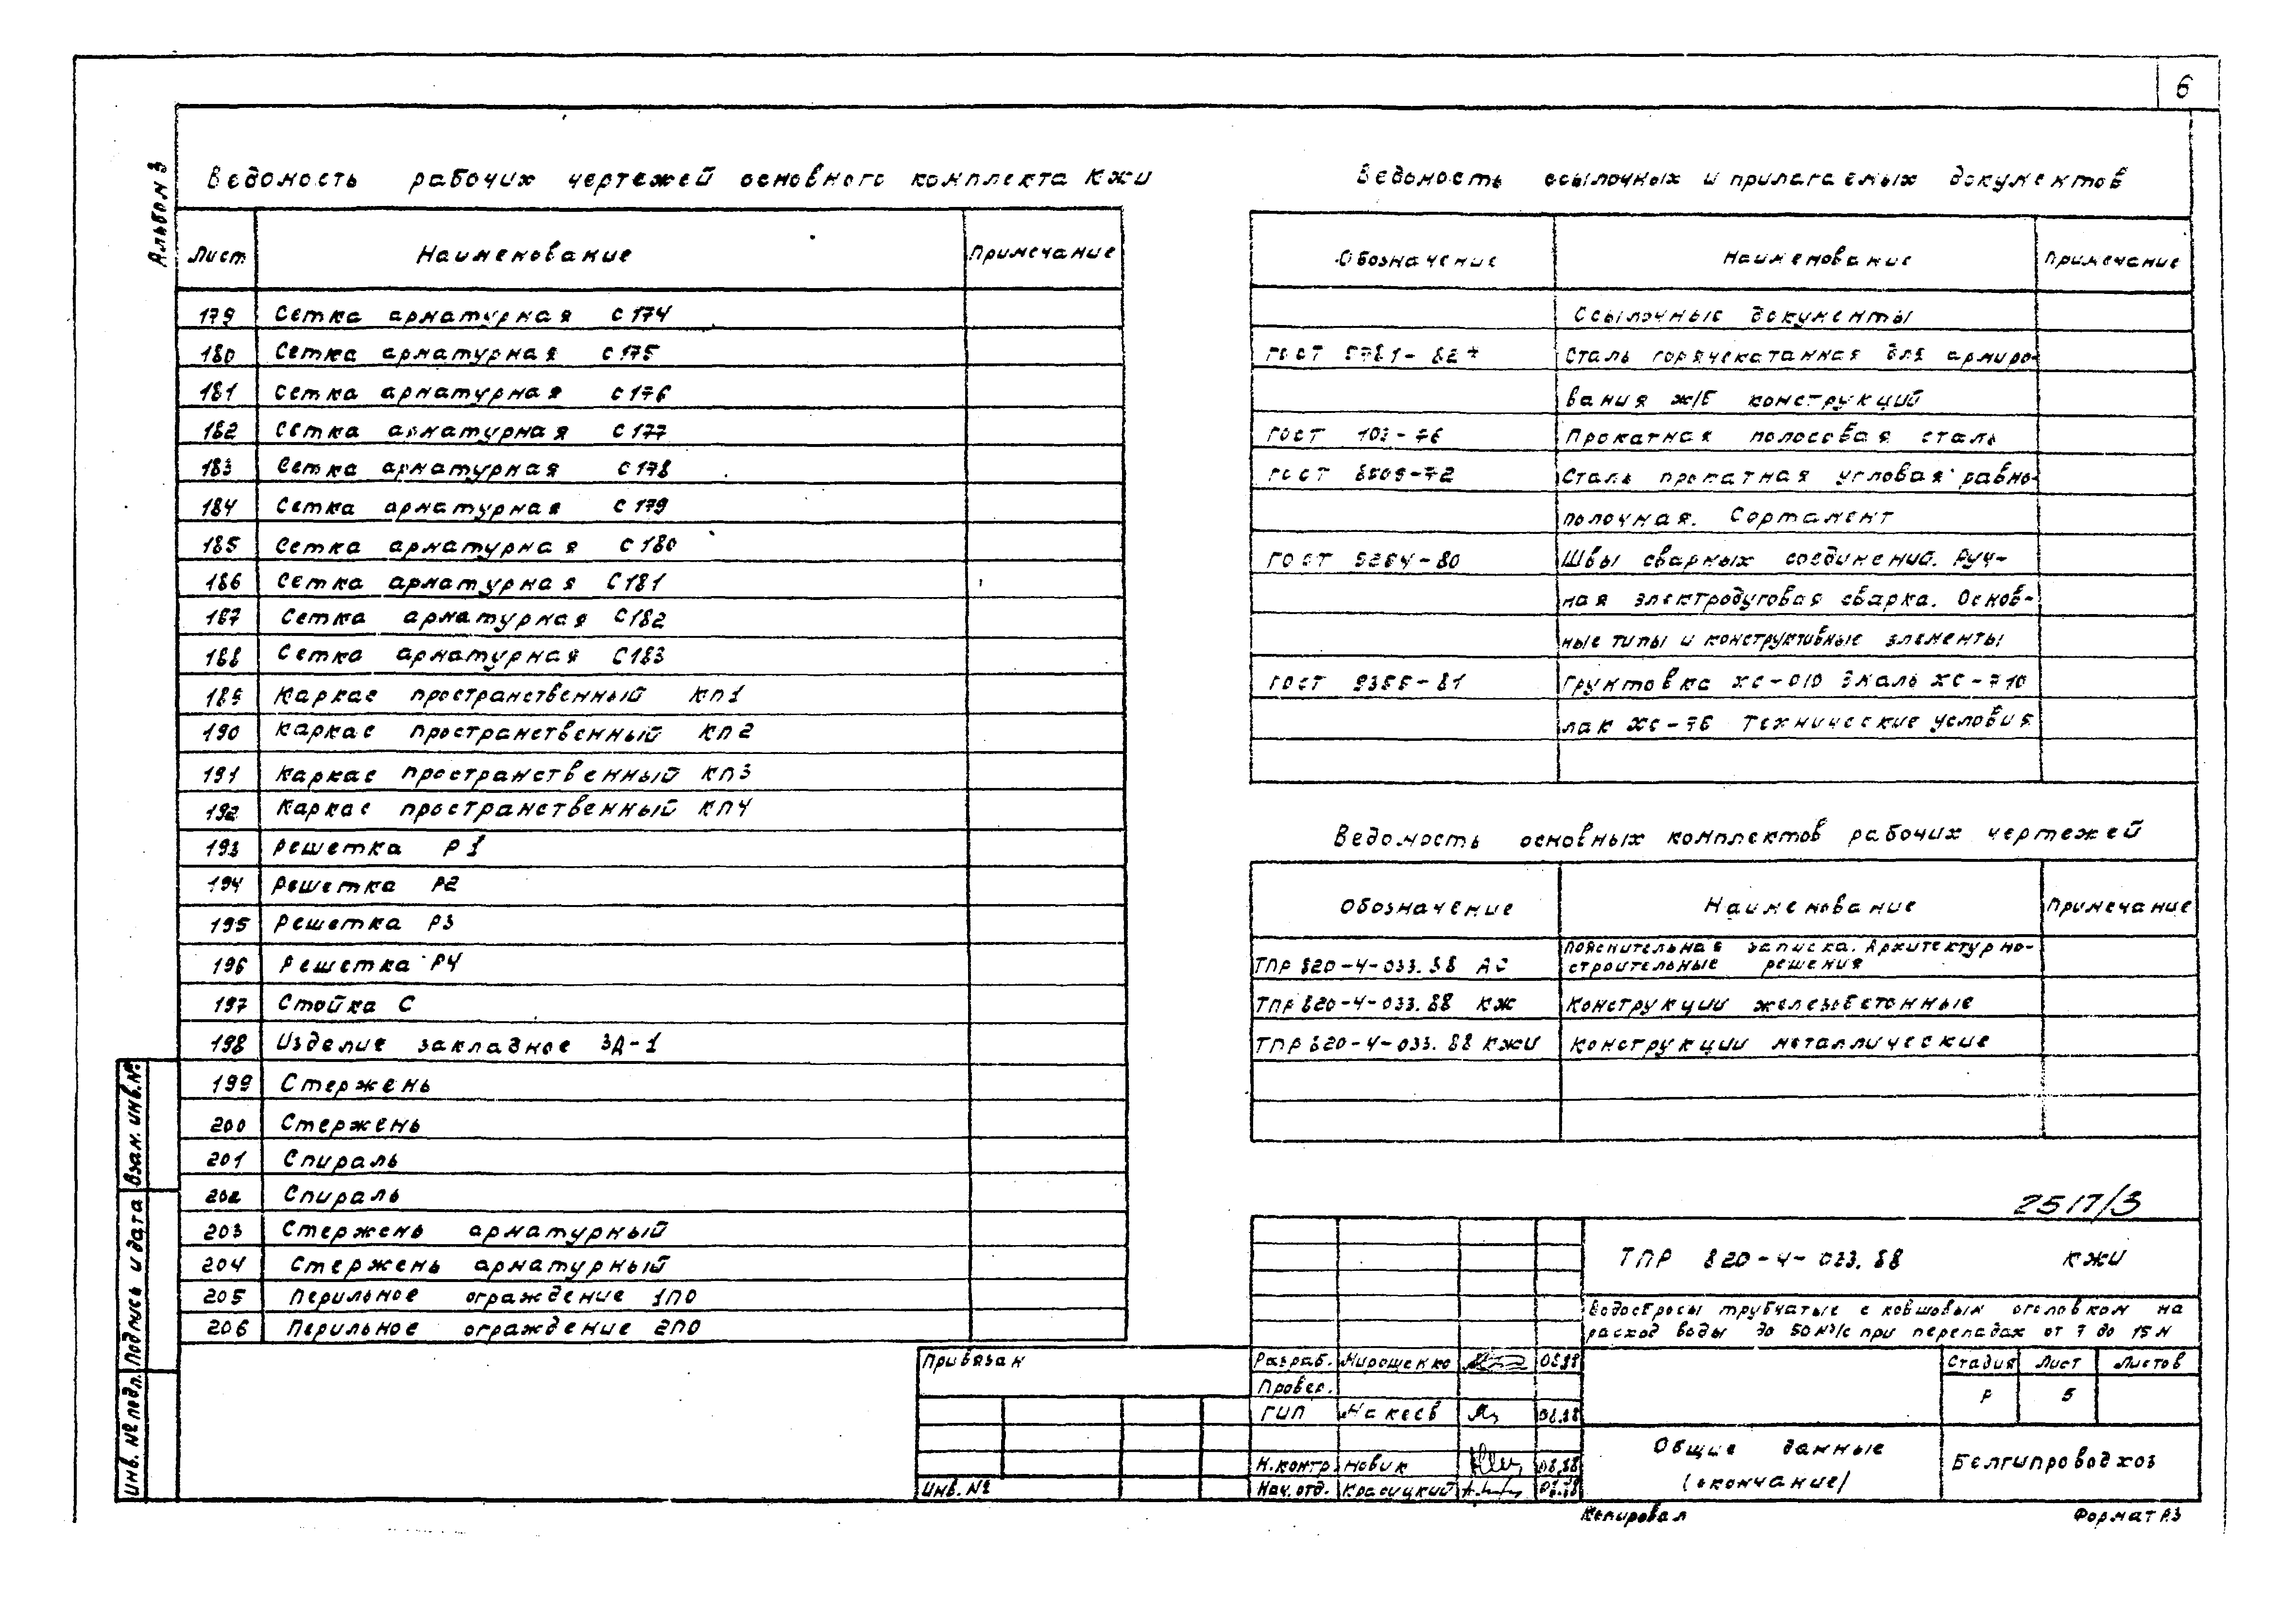 6
Альбом 3
Ведомость рабочих чертежей основного комплекта КЖИ
Лист Наименование Примечание
179 Сетка арматурная С174
180 Сетка арматурная С175
181 Сетка арматурная С176
182 Сетка арматурная С177
183 Сетка арматурная С178
184 Сетка арматурная С179
185 Сетка арматурная С180
186 Сетка арматурная С181
187 Сетка арматурная С182
188 Сетка арматурная С183
189 Каркас пространственный КП1
190 Каркас пространственный КП2
191 Каркас пространственный КП3
192 Каркас пространственный КП4
193 Решетка Р1
194 Решетка Р2
195 Решетка Р3
196 Решетка Р4
197 Стойка С
198 Изделие закладное ЗД-1
199 Стержень
200 Стержень
201 Спираль
202 Спираль
203 Стержень арматурный
204 Стержень арматурный
205 Перильное ограждение 1ПО
206 Перильное ограждение 2ПО
Ведомость ссылочных и прилагаемых документов
Обозначение Наименование Примечание
Ссылочные документы
ГОСТ 5781-82* Сталь горячекатанная для армиро-
вания ж/б конструкций
ГОСТ 103-76 Прокатная полосовая сталь
ГОСТ 8509-72 Сталь прокатная угловая равно-
полочная. Сортамент
ГОСТ 5264-80 Швы сварных соединений. Руч-
ная электродуговая сварка. Основ-
ные типы и конструктивные элементы
ГОСТ 9355-81 Грунтовка ХС-010 Эмаль ХС-710
лак ХС-76 Технические условия
Ведомость основных комплектов рабочих чертежей
Обозначение Наименование Примечание
ТПР 820-4-033.88 АС Пояснительная записка. Архитектурно-
строительные решения
ТПР 820-4-033.88 КЖ Конструкции железобетонные
ТПР 820-4-033.88 КЖИ Конструкции металлические
2517/3
ТПР 820-4-033.88 КЖИ
Водосбросы трубчатые с ковшовым оголовком на
расход воды до 50 м³/с при перепадах от 7 до 15 м
Привязан
Инв. №
Разраб. Мирошенко 08.88
Провер.
ГИП Макеев 08.88
Н.контр. Новик 08.88
Нач.отд. Красицкий 08.88
Стадия Лист Листов
Р 5
Общие данные
(окончание)
Белгипроводхоз
Копировал
Формат А3
Взам. инв. №
Подпись и дата
Инв. № подл.